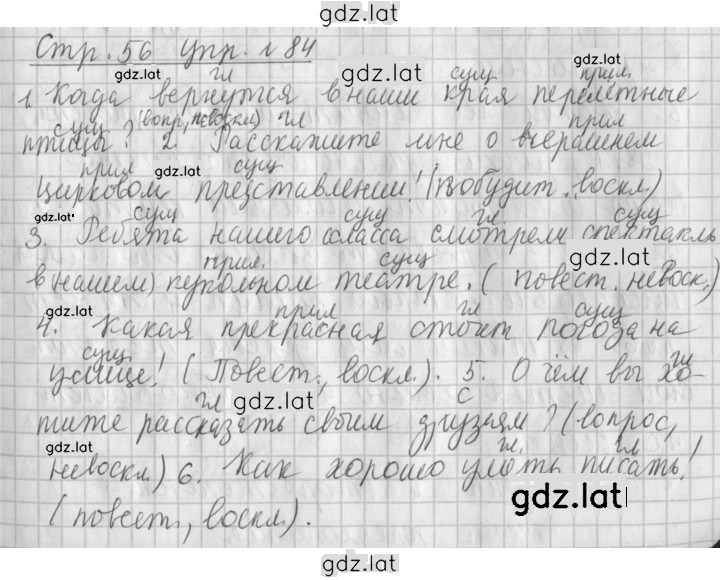 gdz.lat
Стр. 56 упр. № 84
gdz.lat гл gdz.lat сущ прил.
1. Когда вернутся в наши края перелётные
сущ (вопр, невоскл) гл прил
птицы? 2. Расскажите мне о вчерашнем
прил gdz.lat сущ
цирковом представлении! (побудит. воскл)
gdz.lat сущ сущ гл сущ
3. Ребята нашего класса смотрели спектакль
прил. сущ
в нашем) кукольном театре. (повест. невоск.)
gdz.lat прил гл сущ
4. Какая прекрасная стоит погода на
сущ gdz.lat гл
улице! (Повест., воскл.). 5. О чём вы хо-
гл gdz.lat с
тите рассказать своим друзьям? (вопрос,
gdz.lat гл. гл
невоскл) 6. Как хорошо уметь писать!
gdz.lat
(повест., воскл.).
gdz.lat